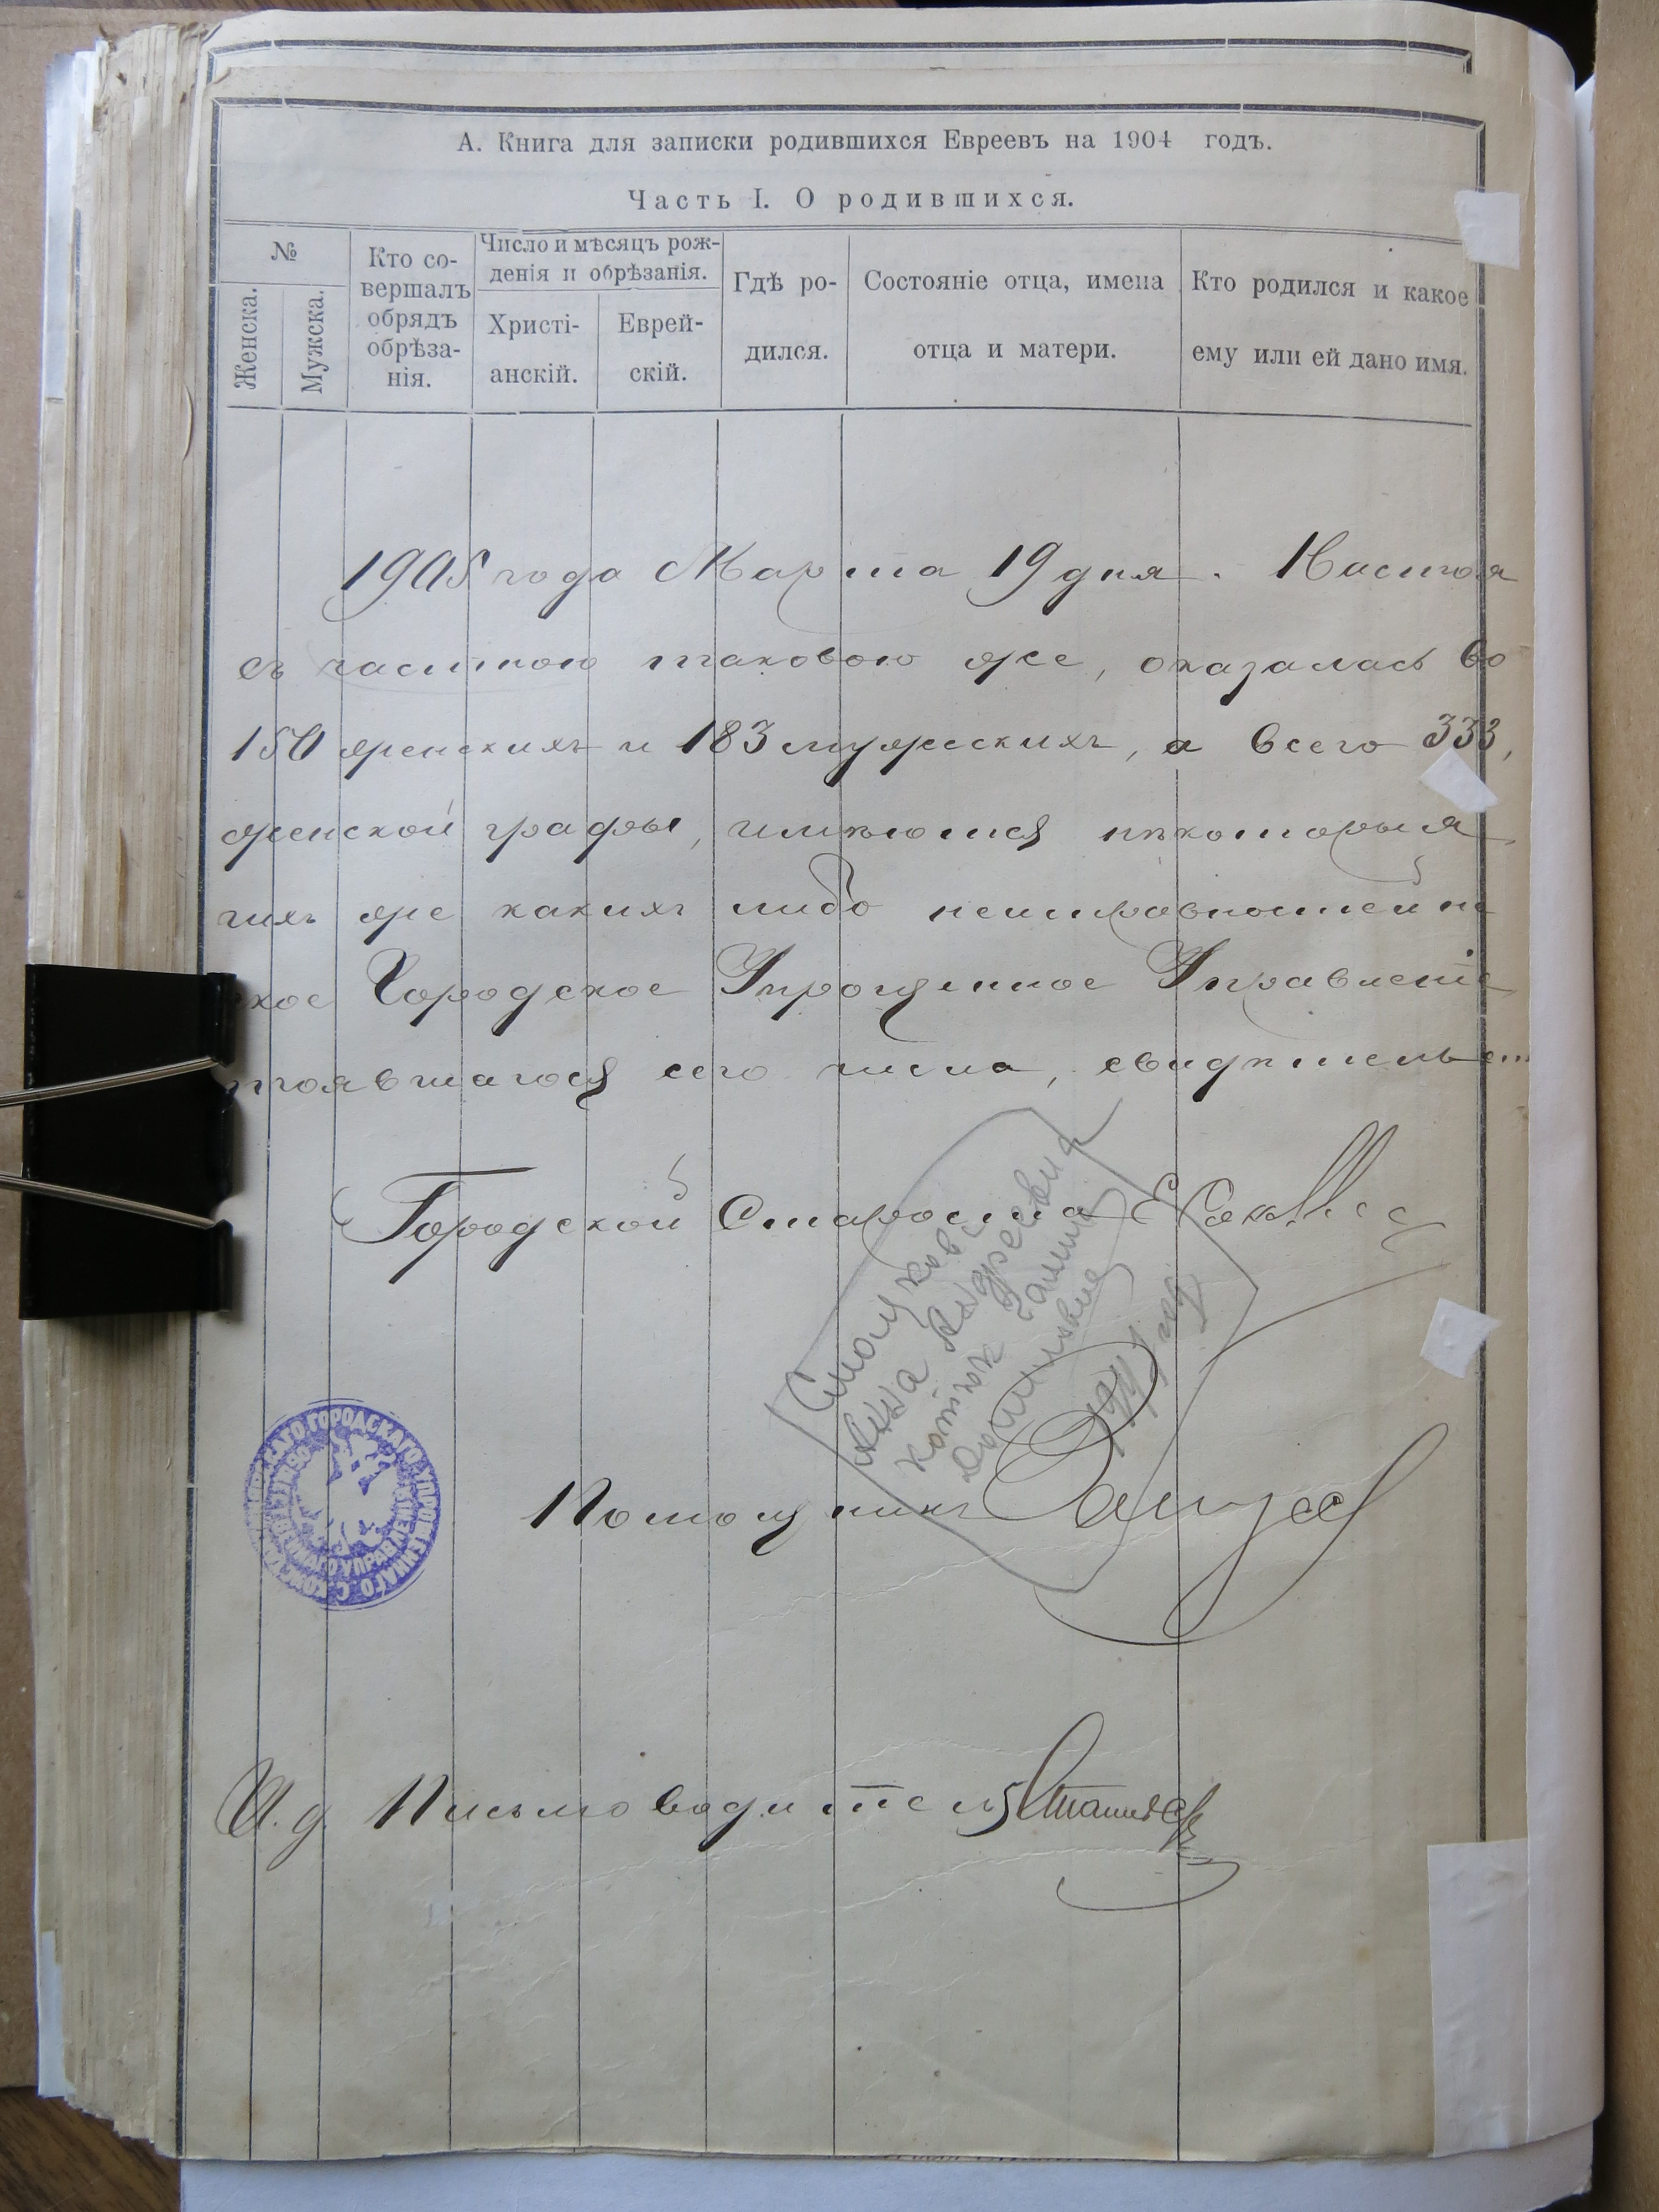 А. Книга для записки родившихся Евреевъ на 1904 годъ.
Часть I. О родившихся.
№
Женска.
Мужска.
Кто со-
вершалъ
обрядъ
обрѣза-
нія.
Число и мѣсяцъ рож-
денія и обрѣзанія.
Христі-
анскій.
Еврей-
скій.
Гдѣ ро-
дился.
Состояніе отца, имена
отца и матери.
Кто родился и какое
ему или ей дано имя.
1905 года Марта 19 дня. Настоя
съ частною таковою же, оказалась во
150 женскихъ и 183 мужескихъ, а всего 333,
женской графы, имѣются нѣкоторыя
чихъ же какихъ либо неисправностей не
кое Городское Упрощенное Управленіе
тоявшагося сего числа, свидѣтельст
Городской Староста
Помощникъ
И. д. Письмоводителя
ГОРОДСКАГО УПРОЩЕННАГО
УПРАВЛЕНІЯ